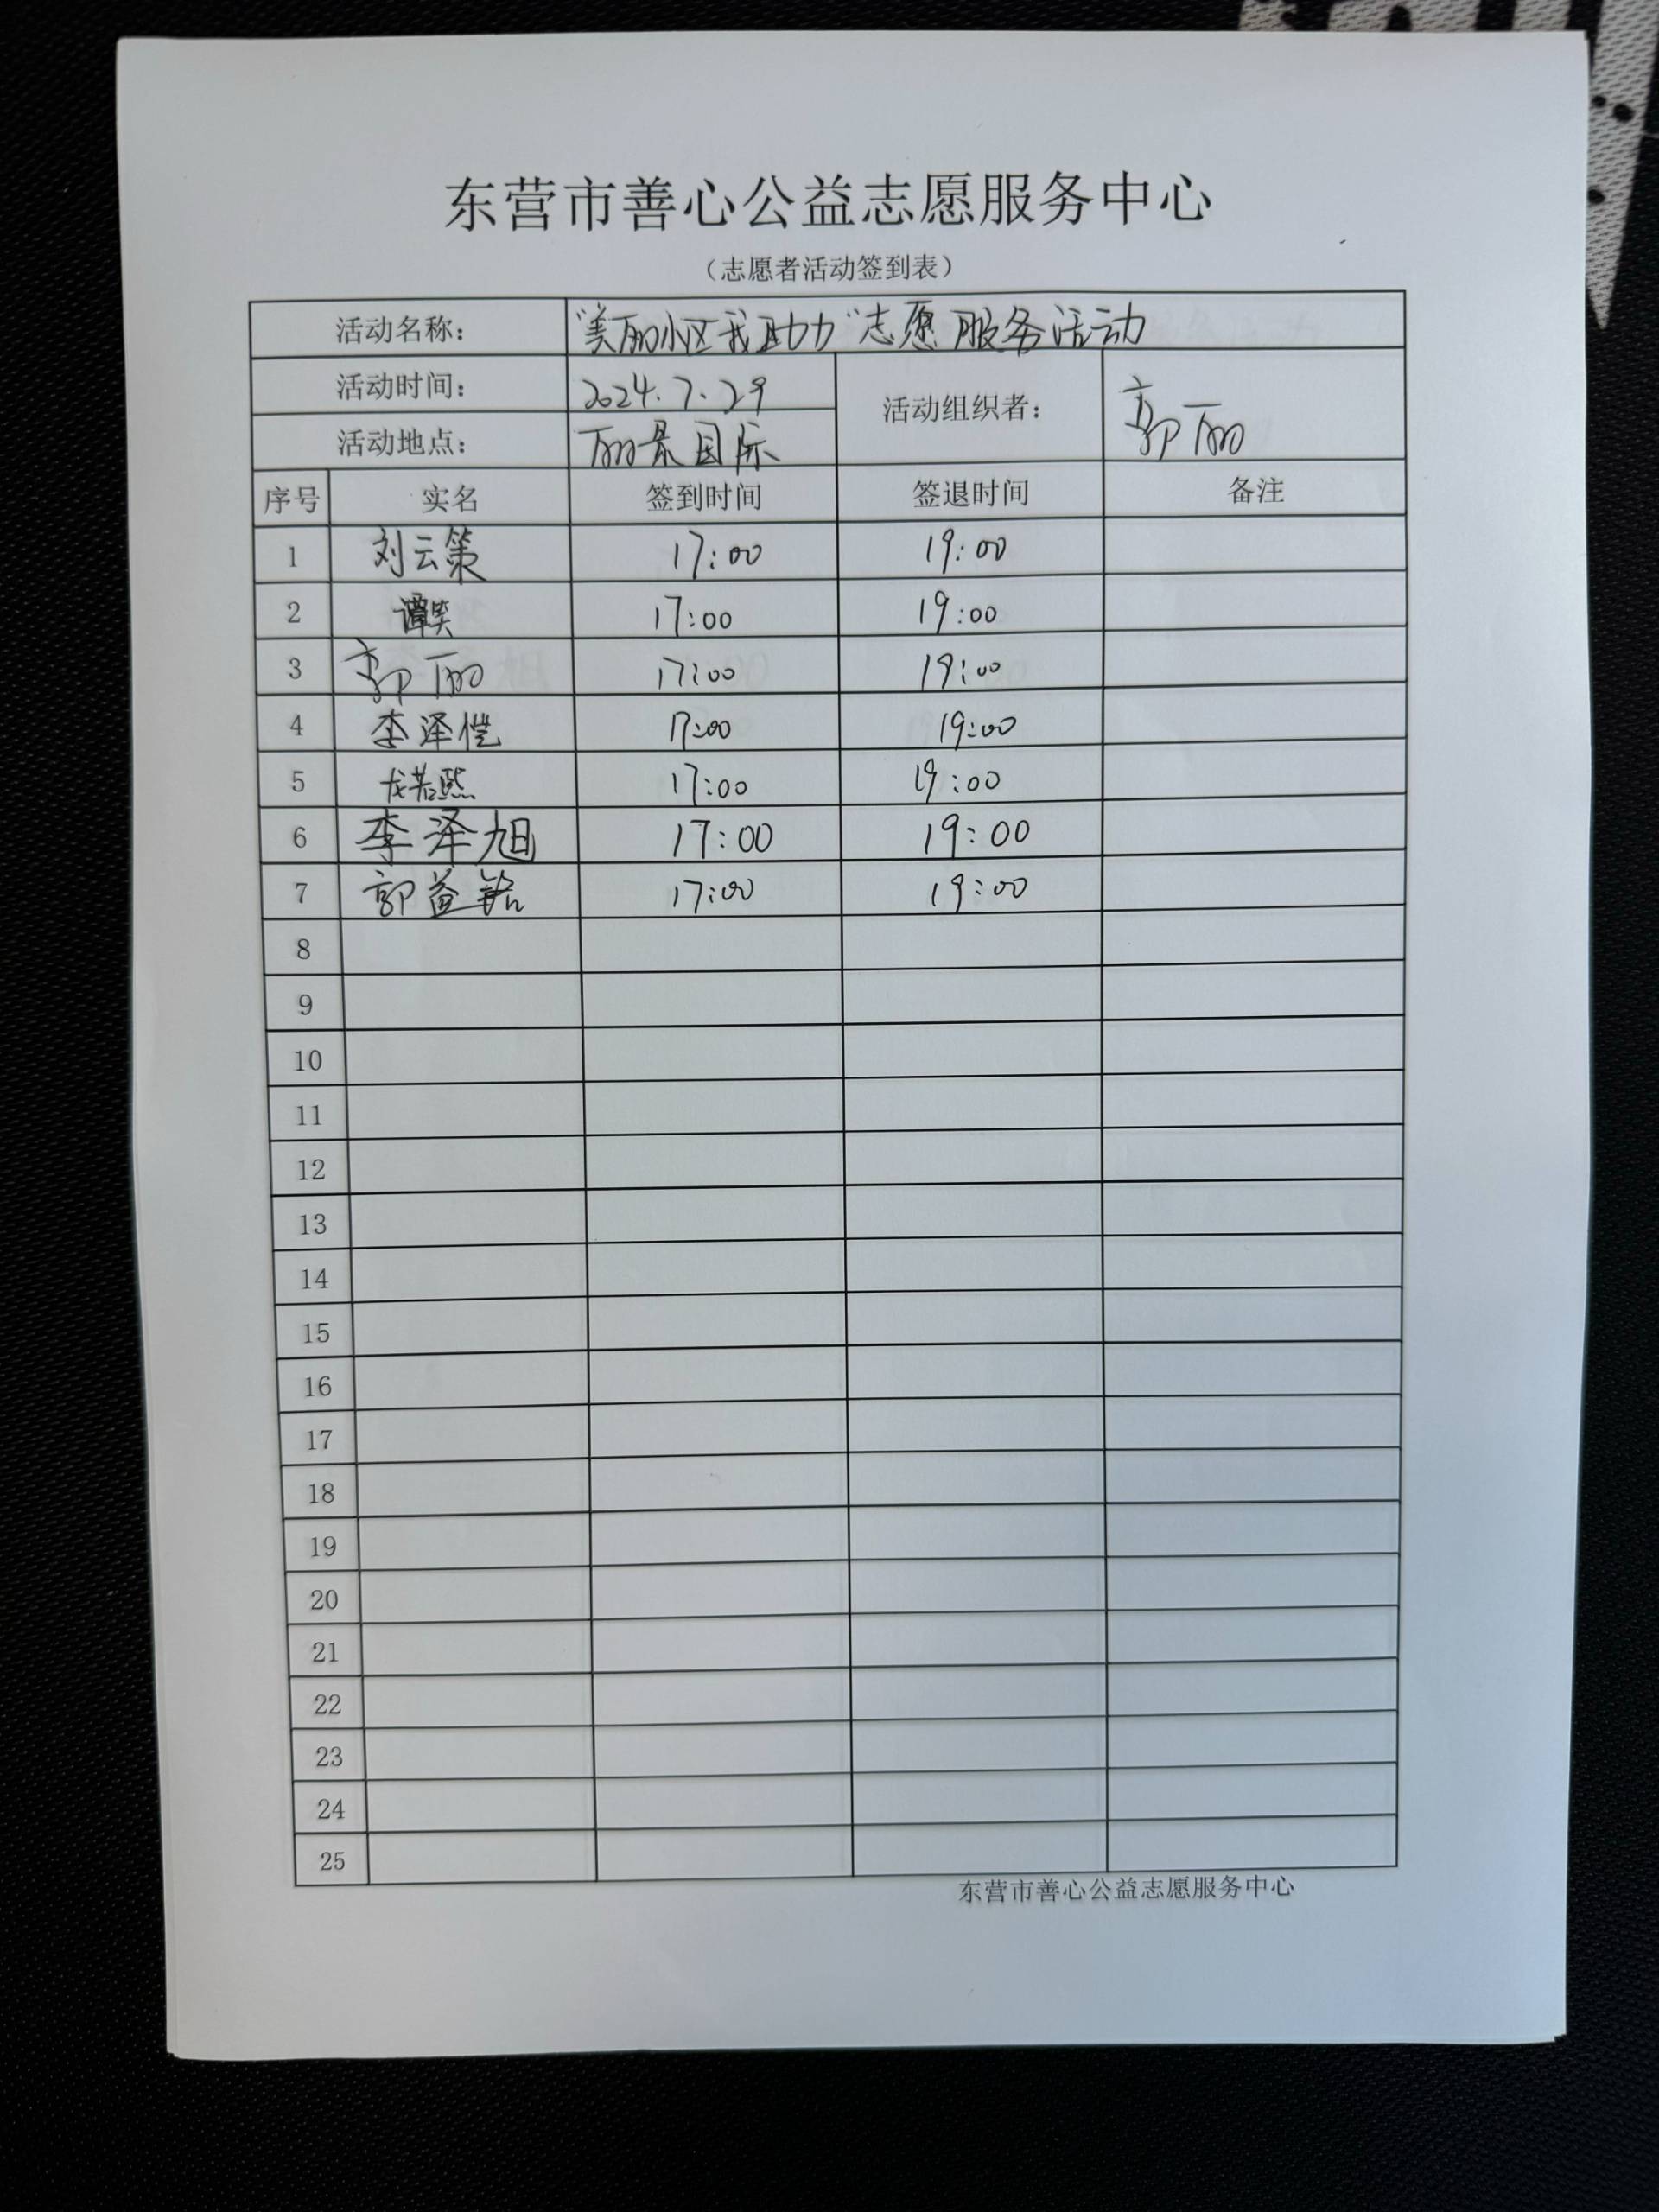 东营市善心公益志愿服务中心
（志愿者活动签到表）
活动名称： "美丽小区我助力"志愿服务活动
活动时间： 2024.7.29 活动组织者： 郭丽
活动地点： 丽景国际
序号 实名 签到时间 签退时间 备注
1 刘云策 17:00 19:00
2 谭笑 17:00 19:00
3 郭丽 17:00 19:00
4 李泽恺 17:00 19:00
5 龙若熙 17:00 19:00
6 李泽旭 17:00 19:00
7 郭益铭 17:00 19:00
8
9
10
11
12
13
14
15
16
17
18
19
20
21
22
23
24
25
东营市善心公益志愿服务中心